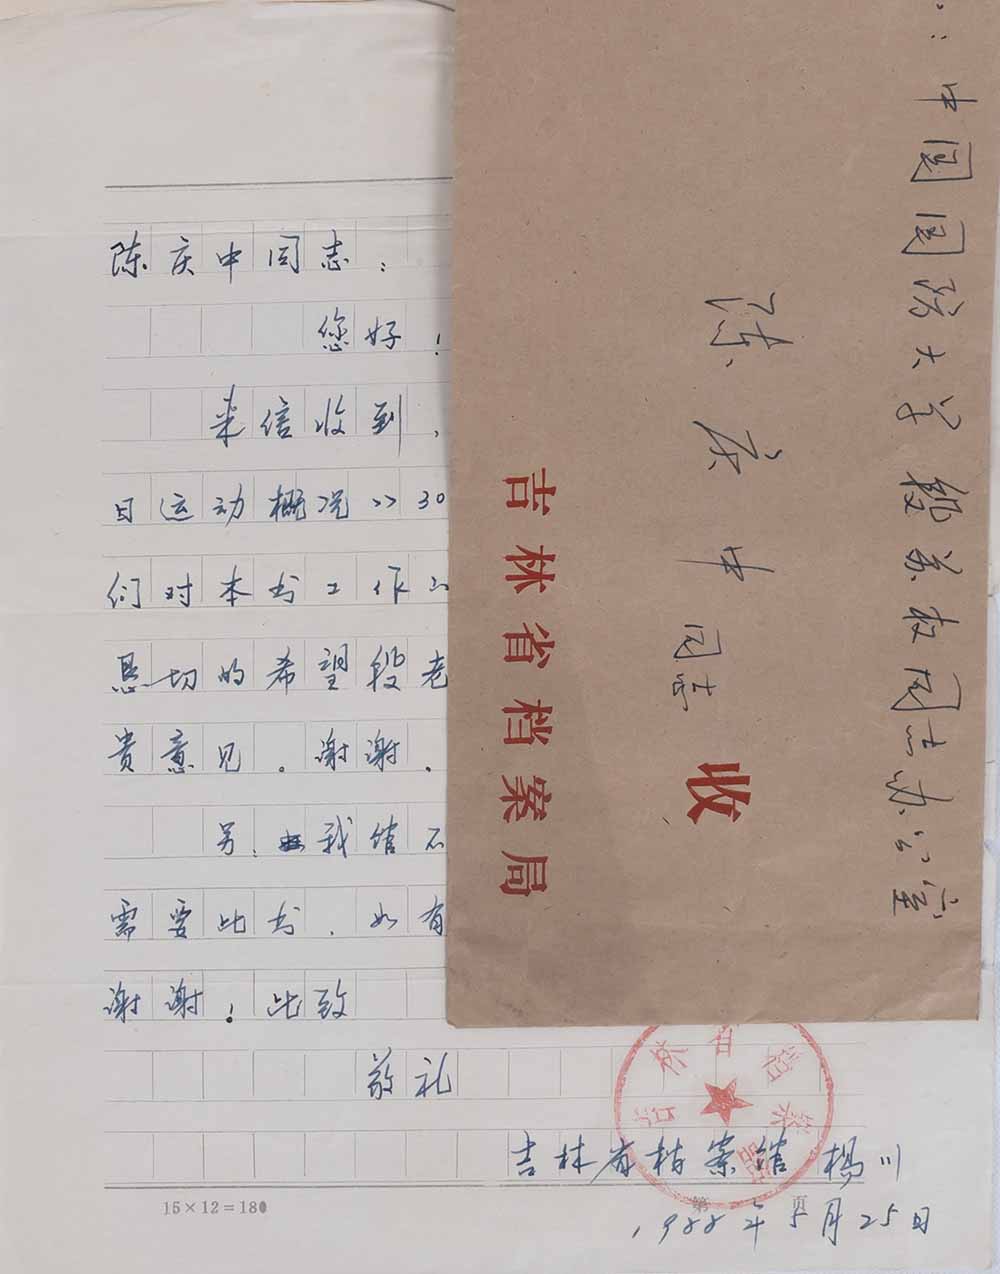 陈庆中同志：
您好！
来信收到，
日运动概况》30
们对本书工作
恳切的希望段老
贵意见。谢谢.
另,我馆
需要此书.如有
谢谢！此致
敬礼
吉林省档案馆 杨川
1988年5月25日
15×12=180
第 页
吉林省档案
中国国防大学 段苏权同志办公室
陈庆中同志
收
吉林省档案局